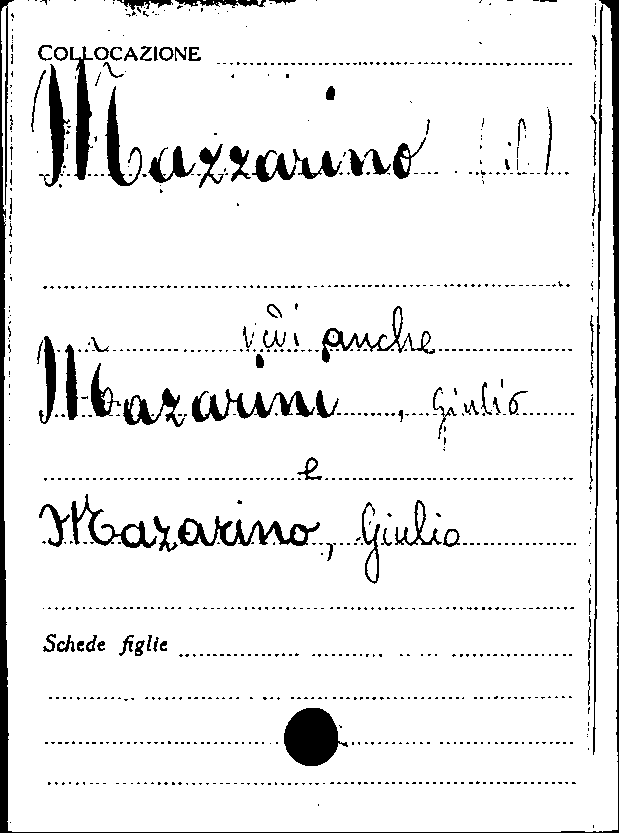 COLLOCAZIONE
Mazzarino (il)
vedi anche
Mazarini, Giulio
e
Mazarino, Giulio
Schede figlie